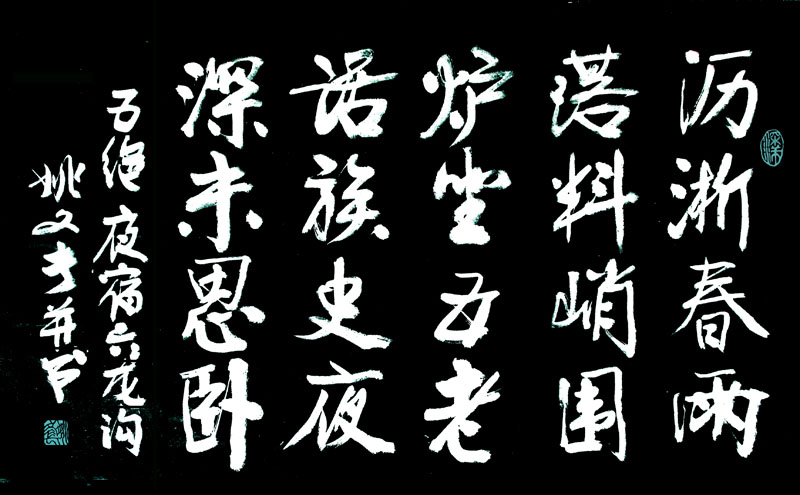 沥淅春雨
落料峭围
炉坐五老
话族史夜
深未思卧
五绝 夜宿六龙沟
姚文才并书